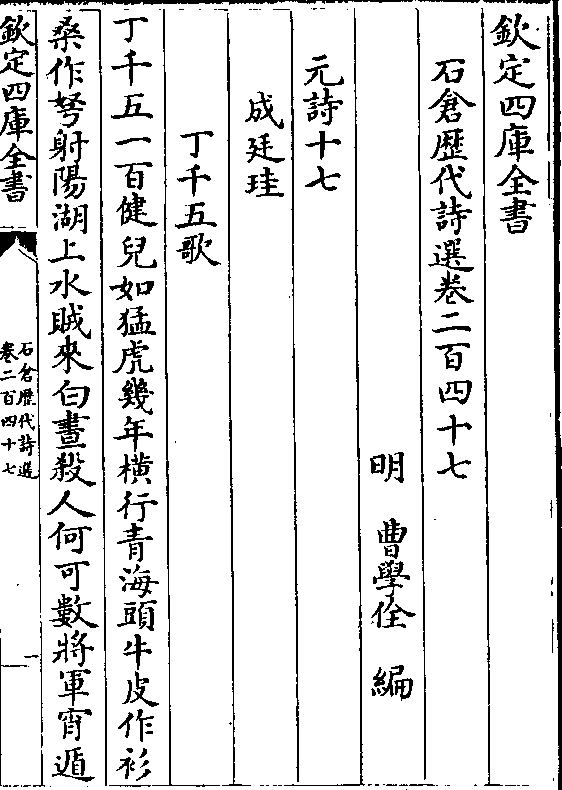 欽定四庫全書
石倉歴代詩選卷二百四十七
明　曹學佺　編
元詩十七
成廷珪
丁千五歌
丁千五一百健兒如猛虎幾年横行青海頭牛皮作衫
桑作弩射陽湖上水賊來白晝殺人何可數將軍宵遁
欽定四庫全書
石倉歴代詩選
卷二百四十七
一